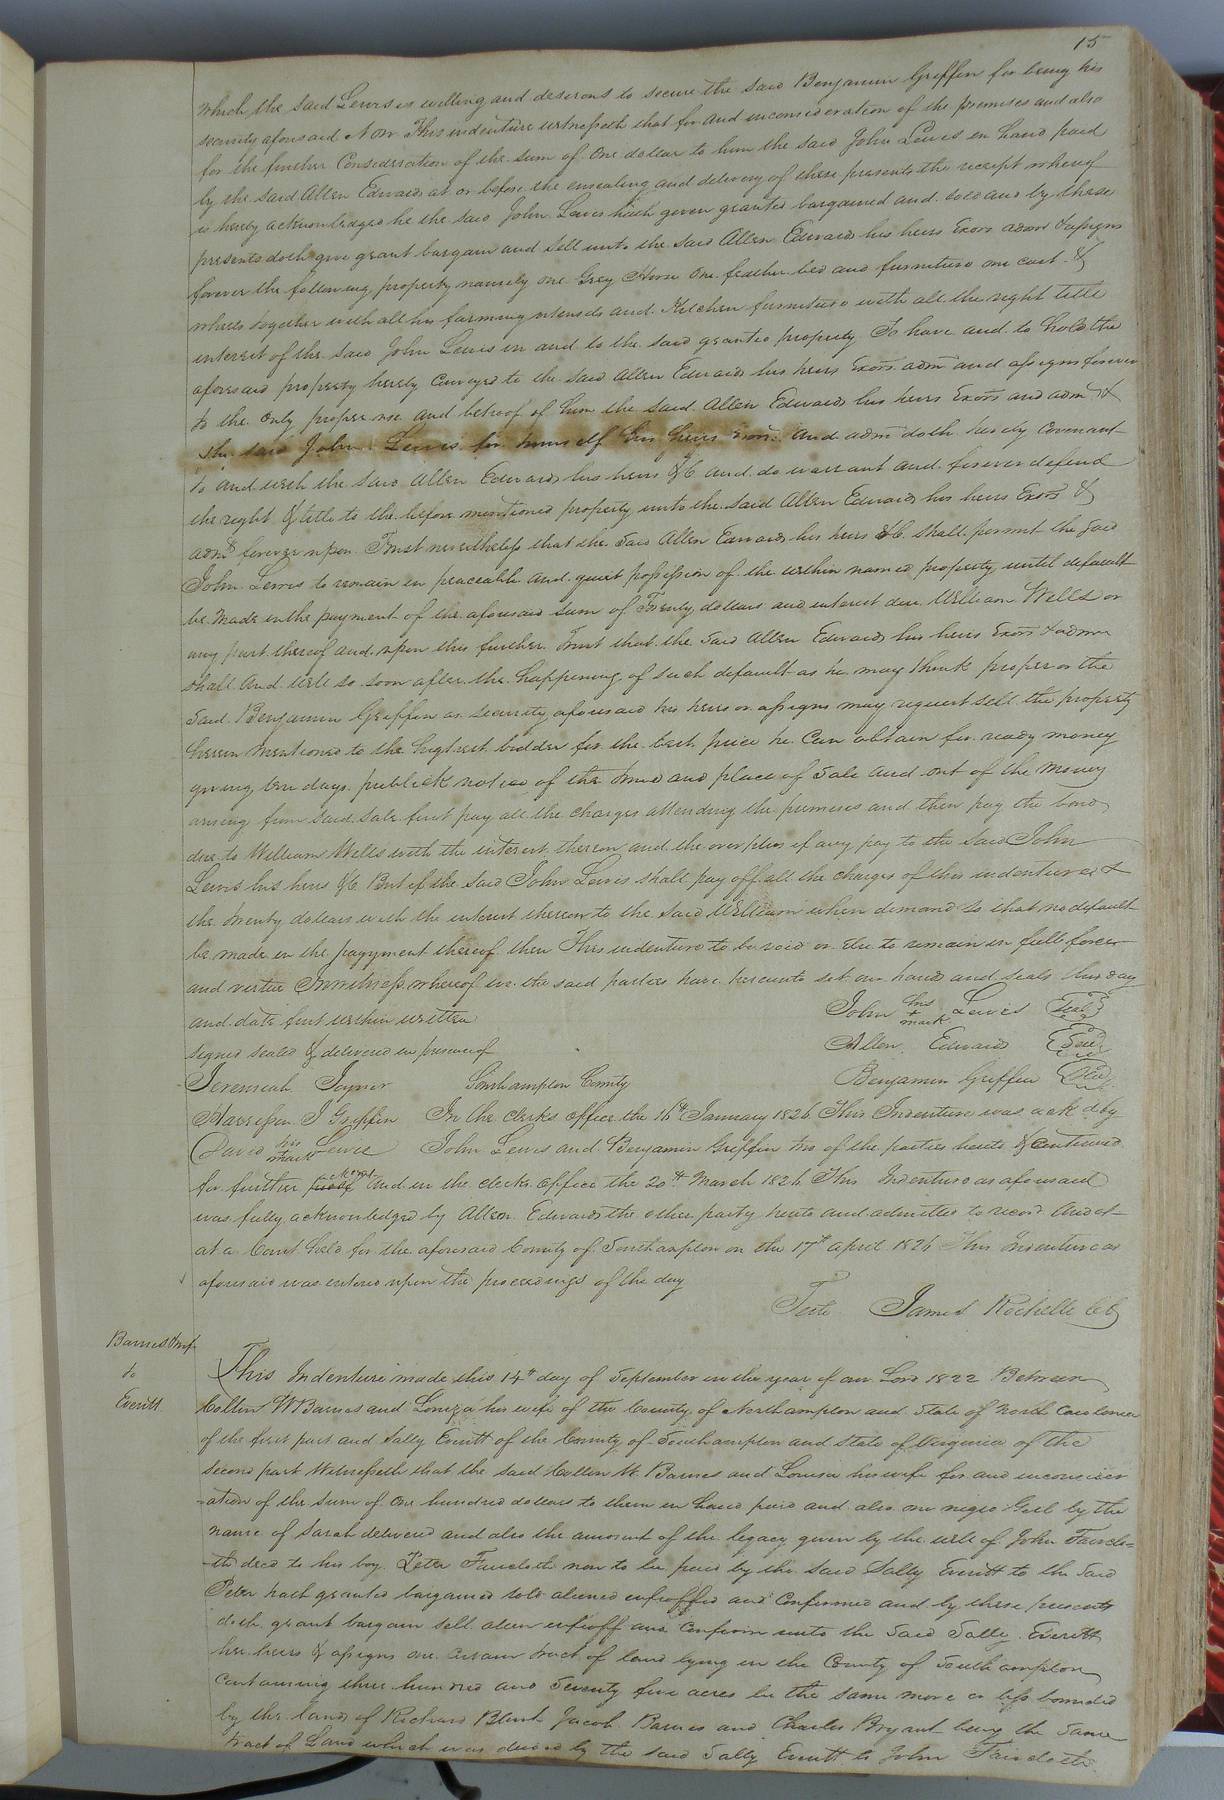 15
which the said Lewis is willing and desirous to secure the said Benjamin Griffin for being his
security aforesaid Now This indenture witnesseth that for and inconsideration of the premises and also
for the further Consideration of the sum of One dollar to him the said John Lewis in hand paid
by the said Allen Edwards at or before the ensealing and delivery of these presents the receipt whereof
is hereby acknowledged he the said John Lewis hath given granted bargained and sold and by these
presents doth give grant bargain and sell unto the said Allen Edwards his heirs Exors admr & assigns
forever the following property namely one Grey Horse One feather bed and furniture one cart &
wheels together with all his farming utensils and Kitchen furniture with all the right title
interest of the said John Lewis in and to the said granted property To have and to hold the
aforesaid property hereby Conveyed to the said Allen Edwards his heirs Exors admr and assigns forever
to the only proper use and behoof of him the said Allen Edwards his heirs Exors and admr &
the said John Lewis for himself his heirs Exors and admr doth hereby Covenant
to and with the said Allen Edwards his heirs &C and do warrant and forever defend
the right & title to the before mentioned property unto the said Allen Edwards his heirs Exors &
admr forever upon Trust nevertheless that the said Allen Edwards his heirs &C shall permit the said
John Lewis to remain in peaceable and quiet possession of the within named property until default
be made in the payment of the aforesaid sum of Twenty dollars and interest due William Wells or
any part thereof and upon this further Trust that the said Allen Edwards his heirs Exors & admr
shall and will so soon after the happening of such default as he may think proper or the
said Benjamin Griffin as security aforesaid his heirs or assigns may request sell the property
herein mentioned to the highest bidder for the best price he can obtain for ready money
giving ten days publick notice of the time and place of sale and out of the money
arising from said sale first pay all the charges attending the premises and then pay the bond
due to William Wells with the interest thereon and the overplus if any pay to the said John
Lewis his heirs &C But if the said John Lewis shall pay off all the charges of this indenture &
the twenty dollars with the interest thereon to the said William when demand so that no default
be made in the payment thereof then This indenture to be void or else to remain in full force
and virtue Inwitness whereof we the said parties have hereunto set our hands and seals this day
and date first within written
John his + mark Lewis Seal
signed sealed & delivered in presence of
Allen Edwards Seal
Jeremiah Joyner Southampton County
Benjamin Griffin Seal
Harrison J Griffin In the clerks office the 16th January 1826 This Indenture was ackd by
David his mark Lewis John Lewis and Benjamin Griffin two of the parties hereto & Continued
for further proof and in the clerks office the 20th March 1826 This Indenture as aforesaid
was fully acknowledged by Allen Edwards the other party hereto and admitted to record And at
at a Court held for the aforesaid County of Southampton on the 17th april 1826 This Indenture as
aforesaid was entered upon the proceedings of the day
Teste James Rochelle CC
Barnes & wf
to
Everitt
This Indenture made this 14th day of September in the year of our Lord 1822 Between
Collin W Barnes and Louiza his wife of the County of Northampton and State of North Carolina
of the first part and Sally Everitt of the County of Southampton and State of Virginia of the
second part Witnesseth that the said Collin W. Barnes and Louisa his wife for and inconsider
-ation of the sum of One hundred dollars to them in hand paid and also one negro Girl by the
name of Sarah delivered and also the amount of the legacy given by the will of John Fairclo=
th decd to his boy Peter Faircloth now to be paid by the said Sally Everitt to the said
Peter hath granted bargained sold aliened enfeoffed and Confirmed and by these presents
doth grant bargain sell alien enfeoff and Confirm unto the said Sally Everitt
her heirs & assigns one certain tract of land lying in the County of Southampton
Containing three hundred and seventy five acres be the same more or less bounded
by the lands of Richard Blunt Jacob Barnes and Charles Bryant being the same
tract of Land which was deeded by the said Sally Everitt to John Faircloth